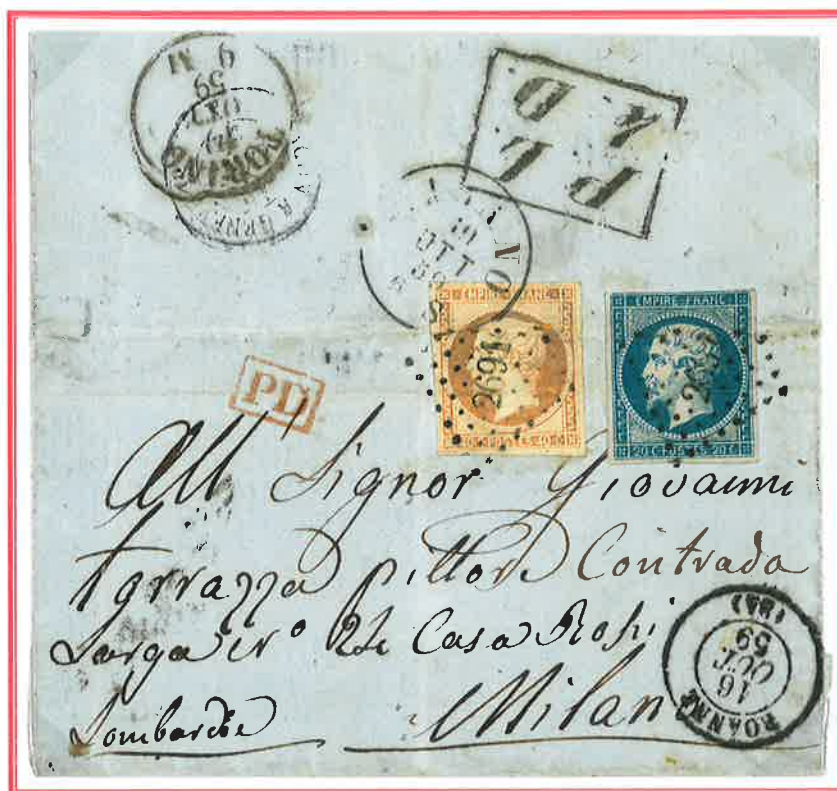 TORINO
17
OTT
59
9 M
P L
4 D
OTT
59
PD
EMPIRE FRANC
2691
EMPIRE FRANC
20 C POSTES 20 C
All Signor Giovanni
tarrazza pittore Contrada
Larga No 24 Casa Rossi
Milan
Lombardie
ROANNE
16
OCT
59
(84)